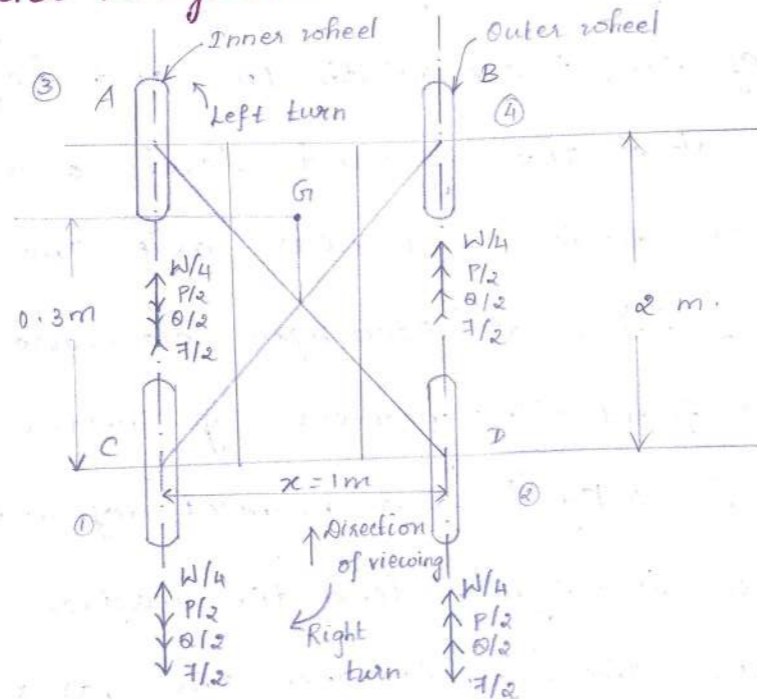 Inner wheel
Outer wheel
③
A
B
④
Left turn
G
W/4
P/2
Q/2
F/2
W/4
P/2
Q/2
F/2
0.3m
2 m.
C
D
x = 1m
①
②
Direction
of viewing
Right
turn
W/4
P/2
Q/2
F/2
W/4
P/2
Q/2
F/2